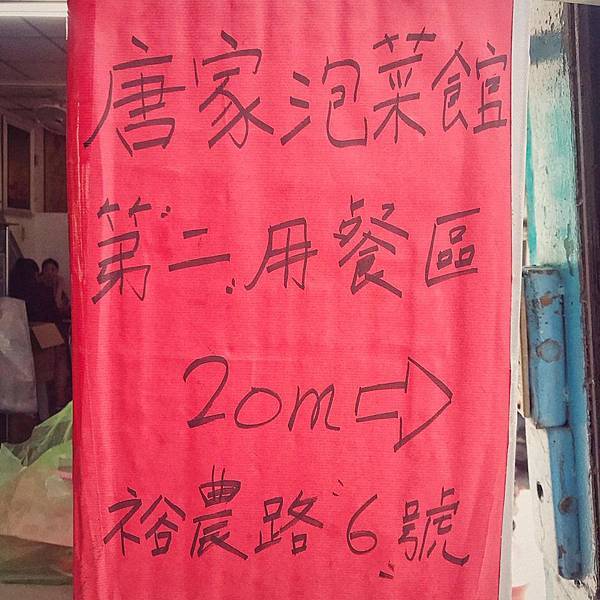 唐家泡菜館
第二用餐區
20m⇨
裕農路6號